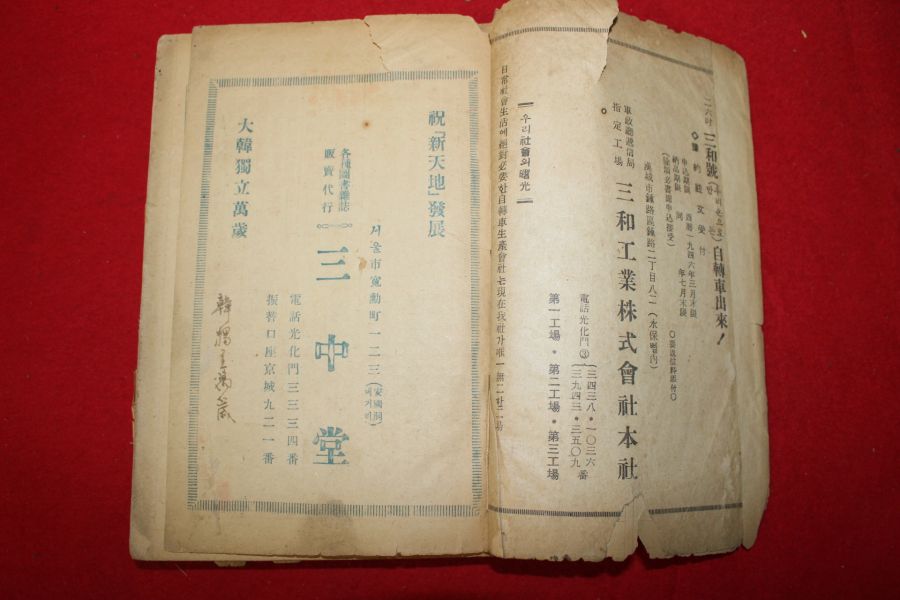 三和號
自轉車出來!
豫約註文受付
申込期限 西曆一九四六年三月末限
納品期限 同 年七月末限
漢城市鍾路區鍾路二丁目八二(永保뻴딍內)
軍政廳遞信局
指定工場
三和工業株式會社本社
電話光化門③
三四三八・一〇三六
三九四三・三五〇九番
第一工場・第二工場・第三工場
우리社會의曙光
日常社會生活에絕對必要한自轉車生產會社는現在我社가唯一無二한
祝「新天地」發展
서울市寬勳町一二三(安國洞네거리)
各種圖書雜誌
販賣代行
三中堂
電話光化門三三三四番
振替口座京城九二一番
大韓獨立萬歲
韓獨立萬歲